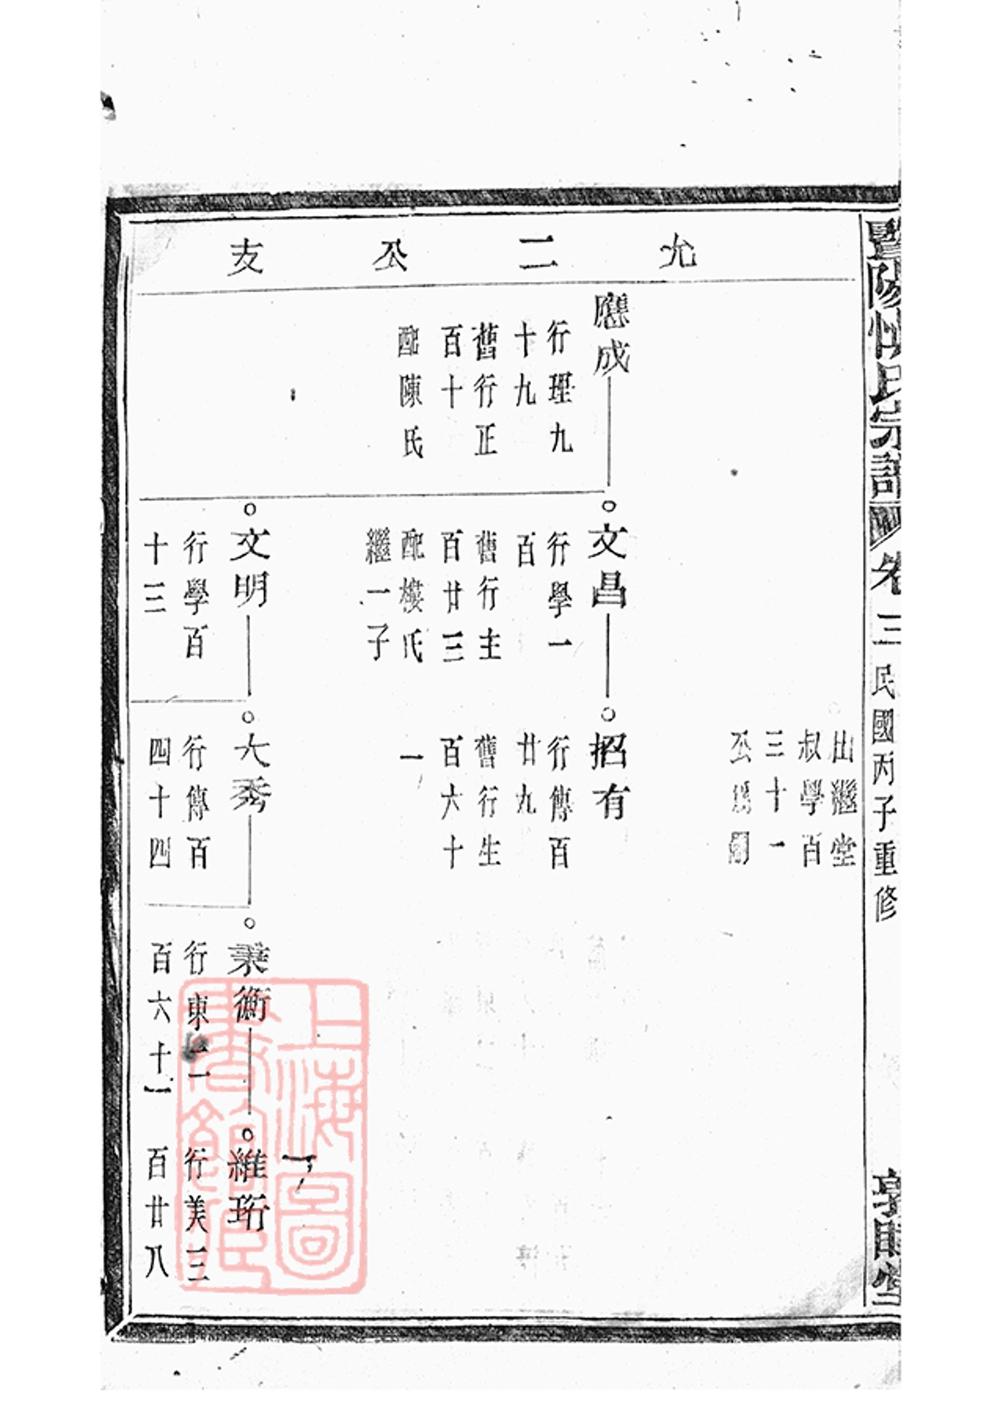 允二公支
宗譜
卷三
民國丙子重修
出繼堂
叔學百
三十一
公為嗣
應成
行理九
十九
舊行正
百十
配陳氏
文昌
行學一
百
舊行主
百廿三
配樓氏
繼一子
招有
行傳百
廿九
舊行生
百六十
一
文明
行學百
十三
大秀
行傳百
四十四
秉衡
行東二
百六十一
維珩
行美三
百廿八
上海圖
書館藏